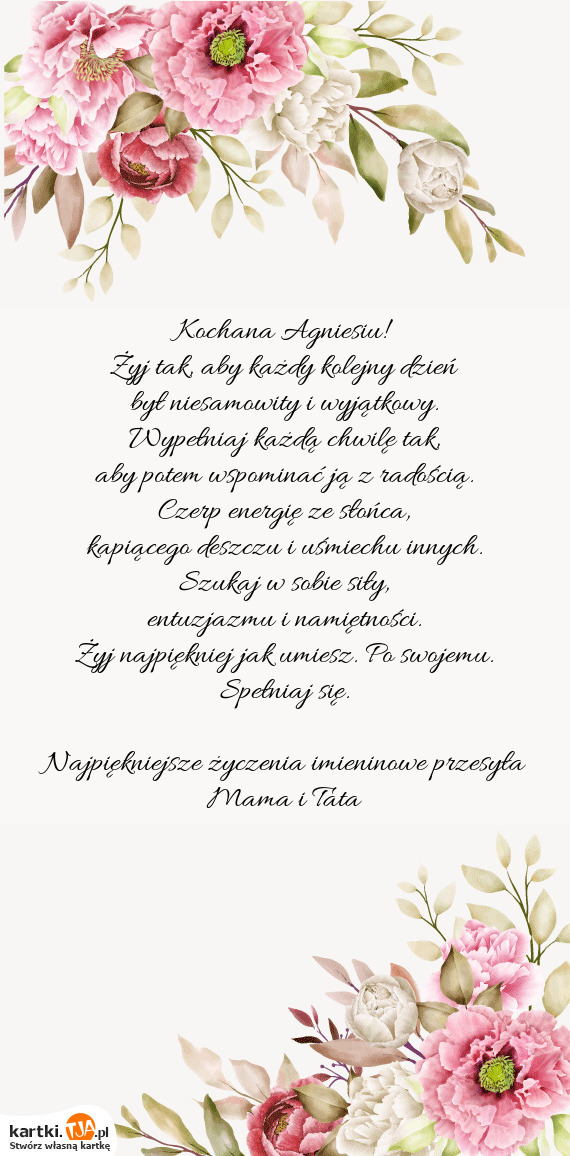 Kochana Agniesiu!
Żyj tak, aby każdy kolejny dzień
był niesamowity i wyjątkowy.
Wypełniaj każdą chwilę tak,
aby potem wspominać ją z radością.
Czerp energię ze słońca,
kapiącego deszczu i uśmiechu innych.
Szukaj w sobie siły,
entuzjazmu i namiętności.
Żyj najpiękniej jak umiesz. Po swojemu.
Spełniaj się.
Najpiękniejsze życzenia imieninowe przesyła
Mama i Tata
kartki.TJA.pl
Stwórz własną kartkę